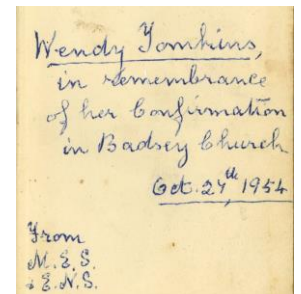 Wendy Tomkins,
in remembrance
of her Confirmation
in Badsey Church
Oct. 27th, 1954
From
M.E.S.
& E.N.S.